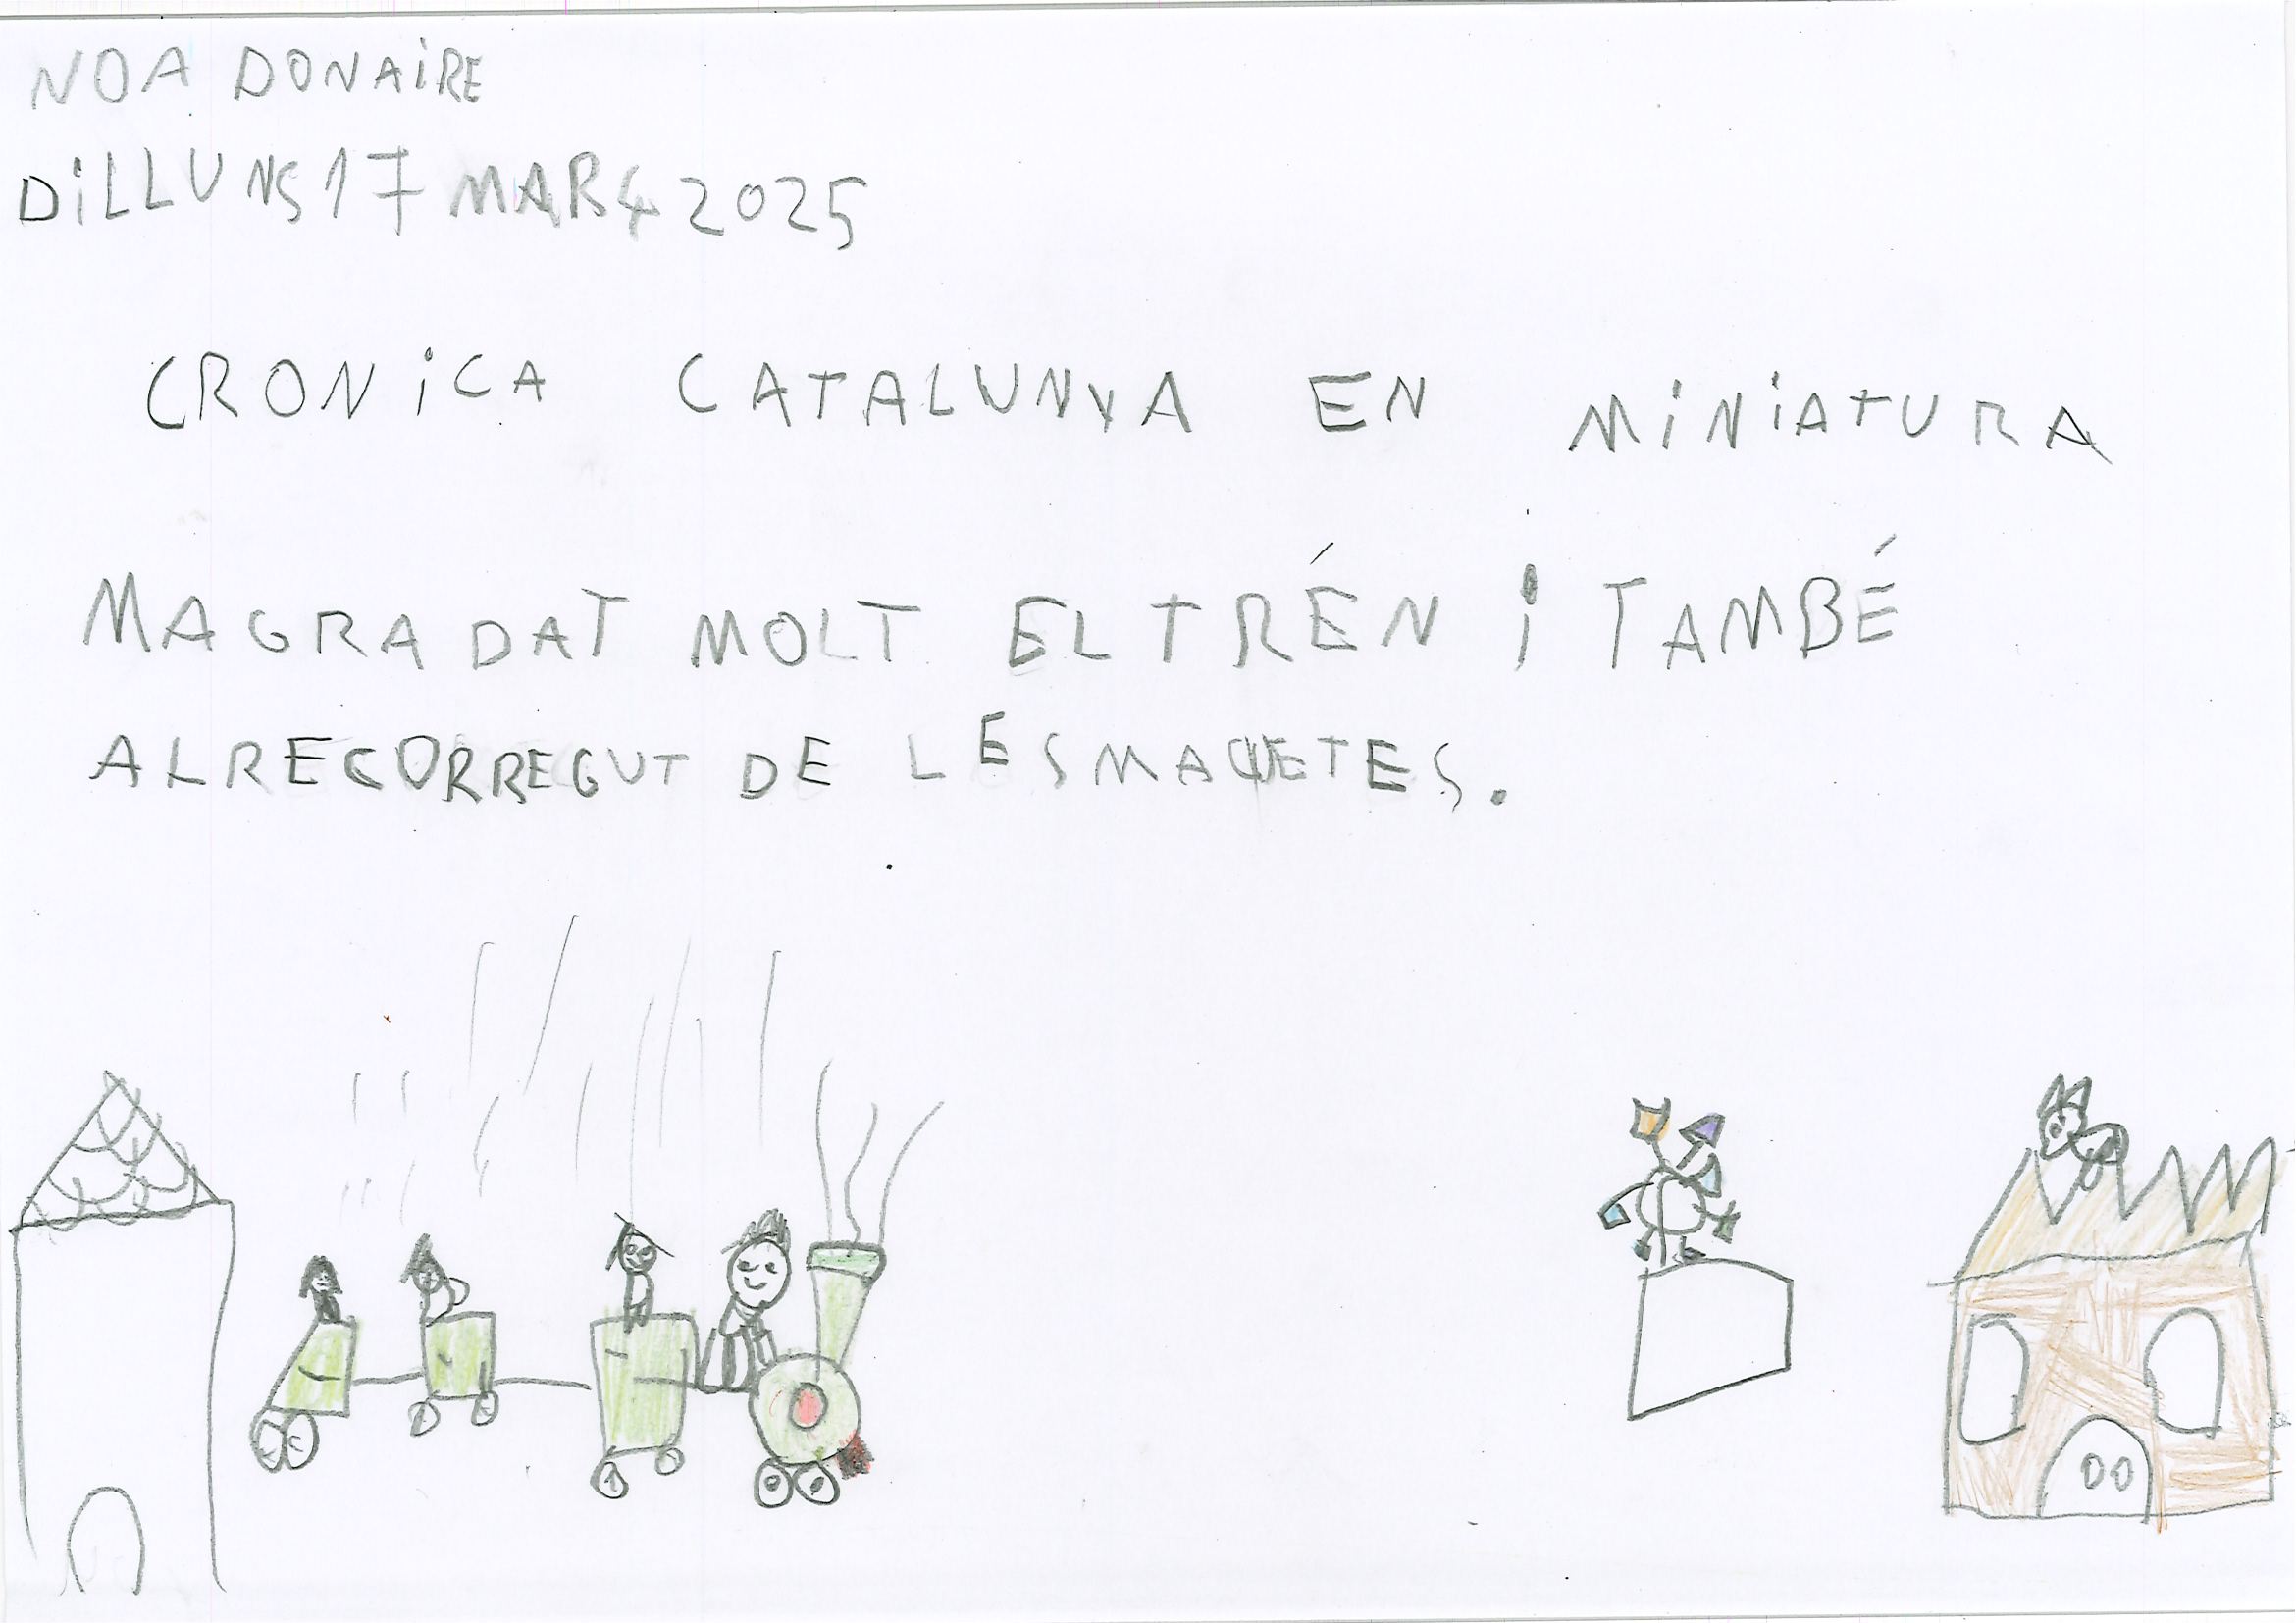 NOA DONAiRE
DiLLUNS 17 MARÇ 2025
CRONiCA CATALUNYA EN MiNiATURA
MAGRADAT MOLT EL TRÉN i TAMBÉ
AL RECORREGUT DE LES MAQUETES.